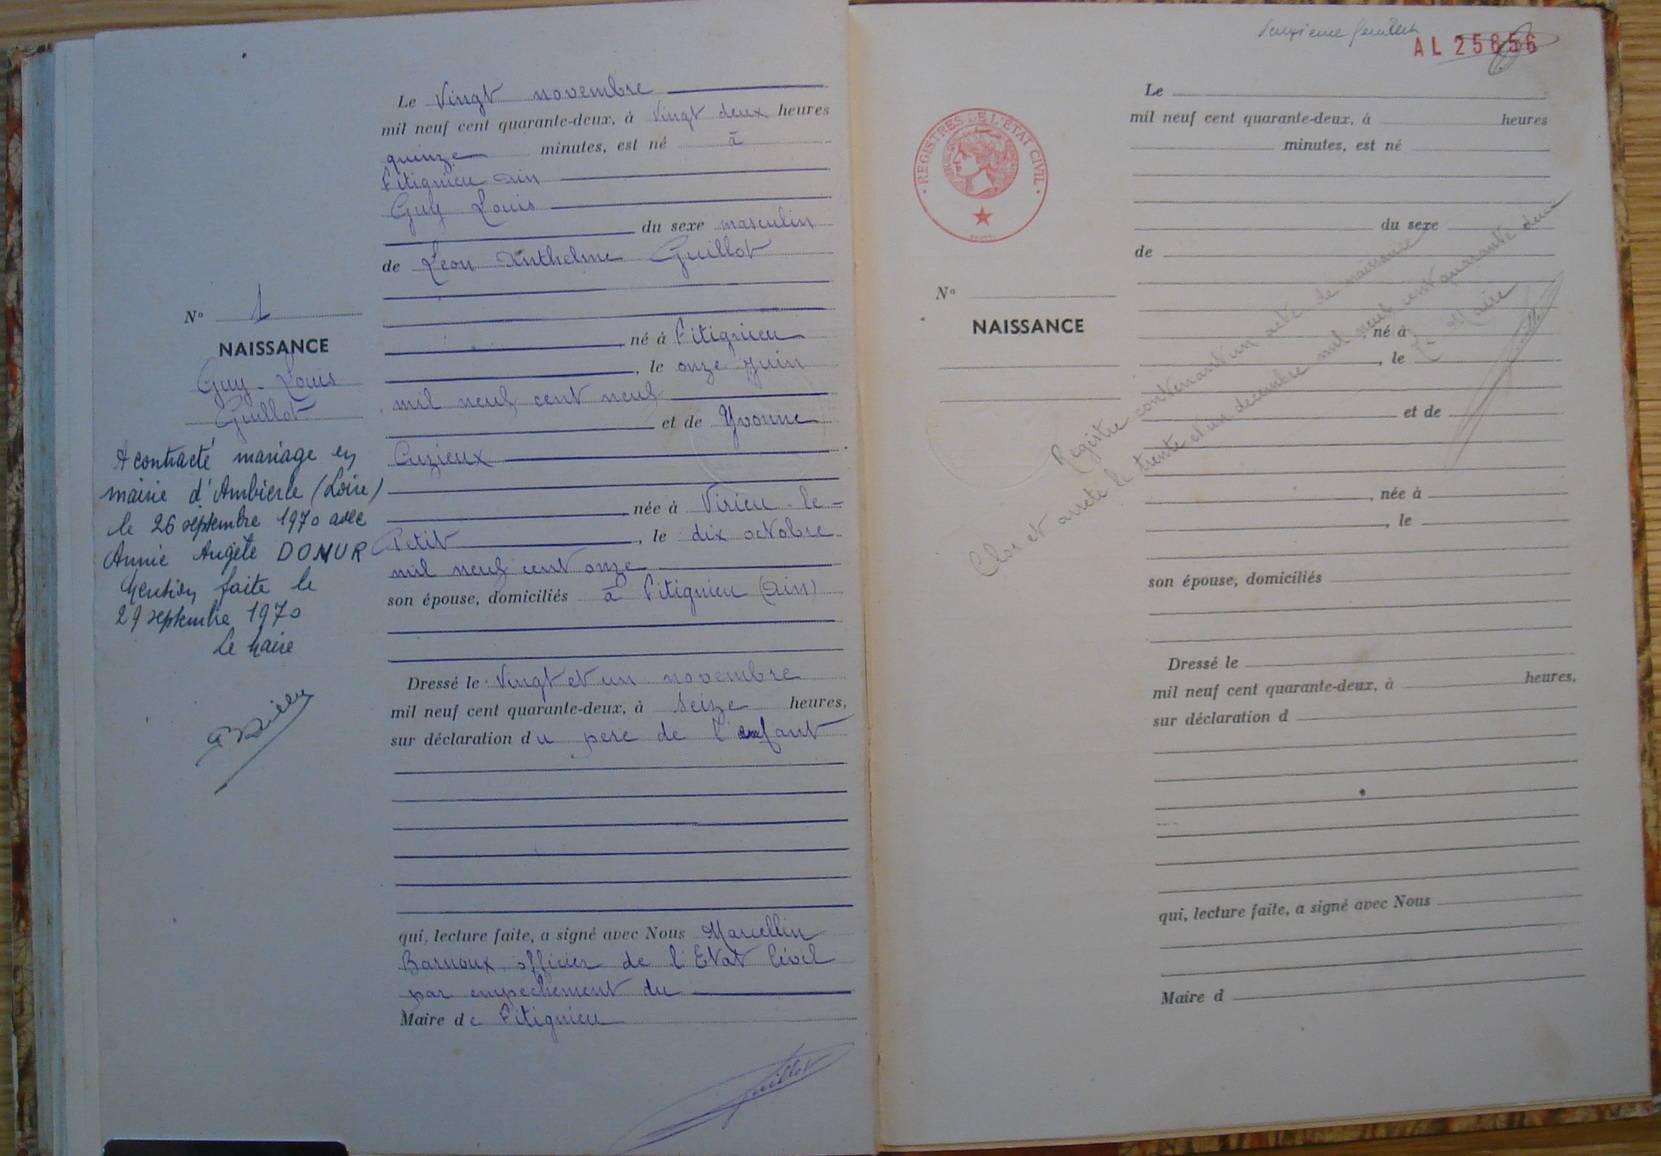 Le Vingt novembre
mil neuf cent quarante-deux, à Vingt deux heures
quinze minutes, est né à
Fitignieu Ain
Guy Louis
du sexe masculin
de Léon Anthelme Guillot
né à Fitignieu
, le onze Juin
mil neuf cent neuf
et de Yvonne
Cuzieux
née à Virieu-le-
Petit , le dix octobre
mil neuf cent onze
son épouse, domiciliés à Fitignieu (Ain)
Dressé le Vingt et un novembre
mil neuf cent quarante-deux, à Seize heures,
sur déclaration du pere de l'enfant
qui, lecture faite, a signé avec Nous Marcellin
Barnoux officier de l'Etat Civil
par empechement du
Maire de Fitignieu
Guillot
N° 1
NAISSANCE
Guy-Louis
Guillot
A contracté mariage en
mairie d'Ambierle (Loire)
le 26 septembre 1970 avec
Annie Angèle DONUR
Mention faite le
29 septembre 1970
Le Maire
AL 25656
REGISTRES DE L'ETAT CIVIL
N°
NAISSANCE
Le
mil neuf cent quarante-deux, à heures
minutes, est né
du sexe
de
né à
, le
et de
, née à
, le
son épouse, domiciliés
Dressé le
mil neuf cent quarante-deux, à heures,
sur déclaration d
qui, lecture faite, a signé avec Nous
Maire d
Registre contenant un acte de naissance
Clos et arrêté le trente et un decembre mil neuf cent quarante deux
Le Maire